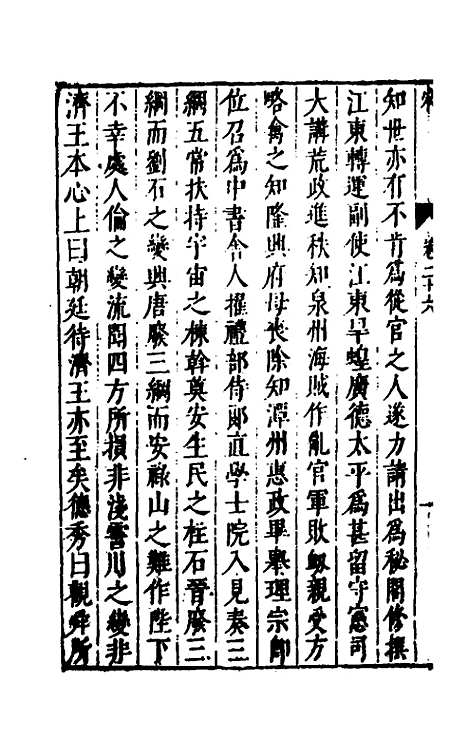 卷二十六
知世亦有不肯為從官之人遂力請出為秘閣修撰
江東轉運副使江東旱蝗廣德太平為甚留守憲司
大講荒政進秩知泉州海賊作亂官軍敗衂親受方
略禽之知隆興府母喪除知潭州惠政畢舉理宗即
位召為中書舍人擢禮部侍郎直學士院入見奏三
綱五常扶持宇宙之棟幹奠安生民之柱石晉廢三
綱而劉石之變興唐廢三綱而安祿山之難作陛下
不幸處人倫之變流聞四方所損非淺霅川之變非
濟王本心上曰朝廷待濟王亦至矣德秀曰觀舜所